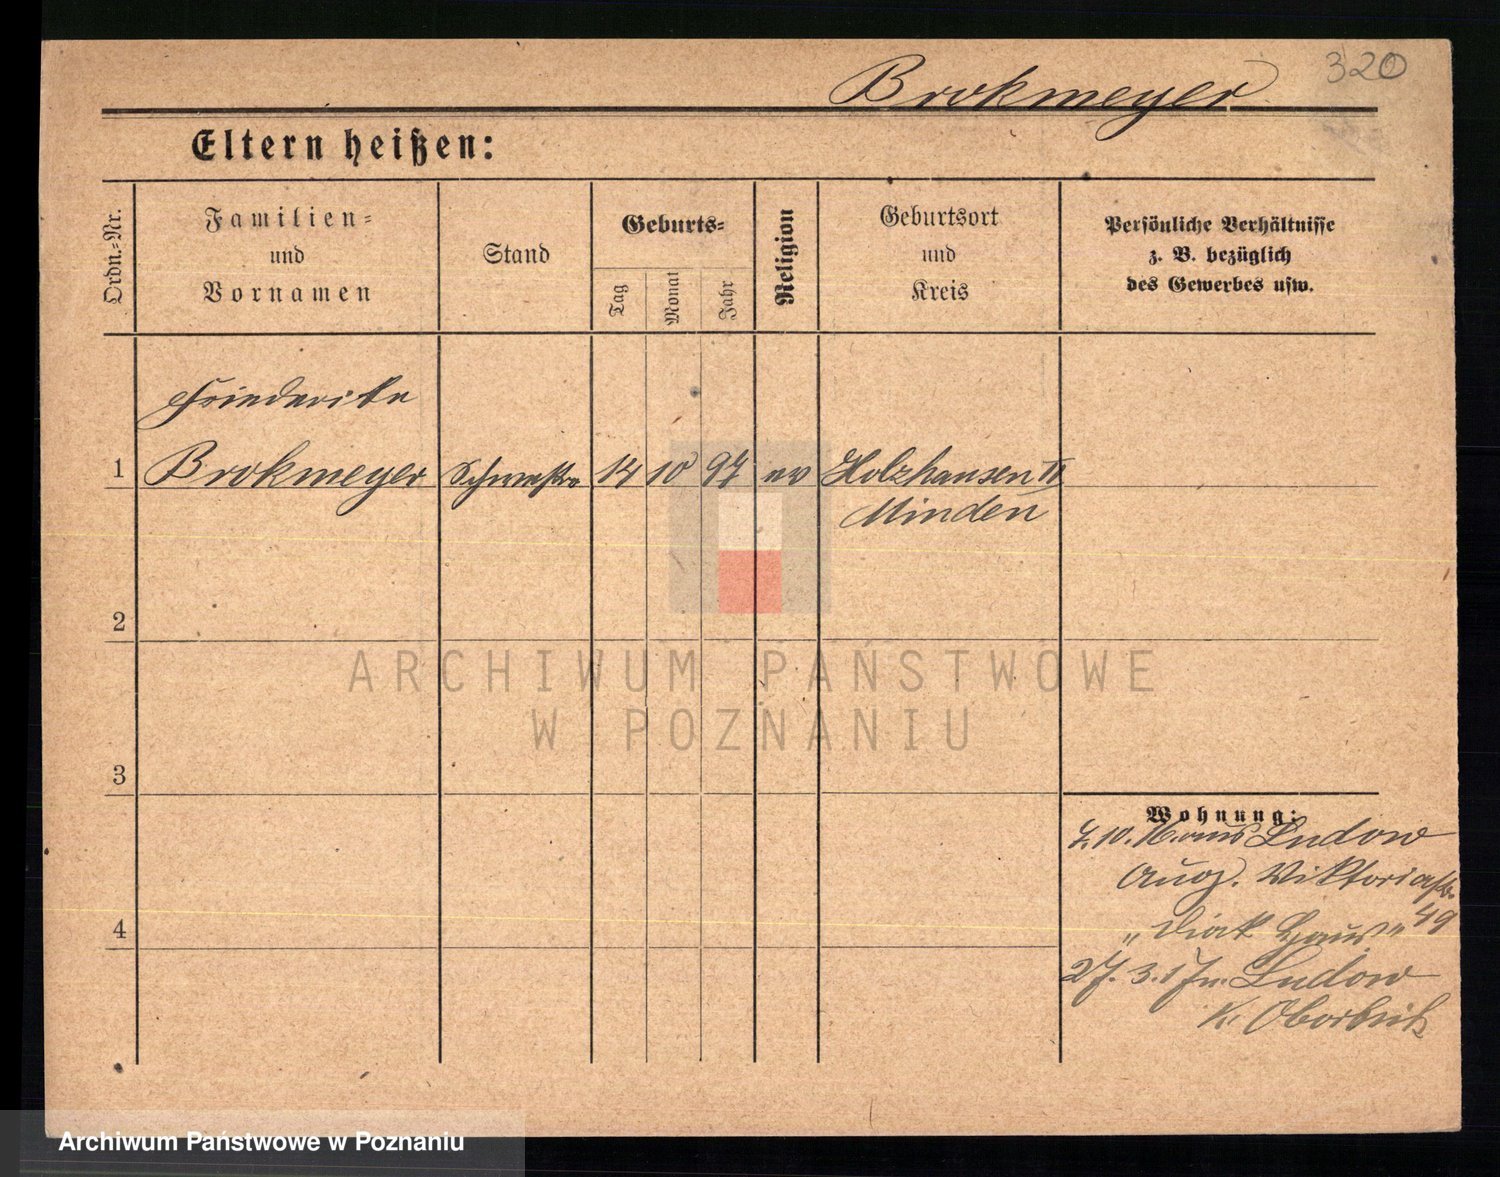 320
Brokmeyer
Eltern heißen:
Ordn.-Nr.
Familien-
und
Vornamen
Stand
Geburts-
Tag
Monat
Jahr
Religion
Geburtsort
und
Kreis
Persönliche Verhältnisse
z. B. bezüglich
des Gewerbes usw.
Friederike
1 Brokmeyer Schwester 14 10 97 ev Holzhausen II
Minden
2
3
4
Wohnung:
7.10.16. aus Ludow
Aug. Viktoriastr.
"Diak Haus" 49
27.3.17 n. Ludow
K.
ARCHIWUM PAŃSTWOWE
W POZNANIU
Archiwum Państwowe w Poznaniu